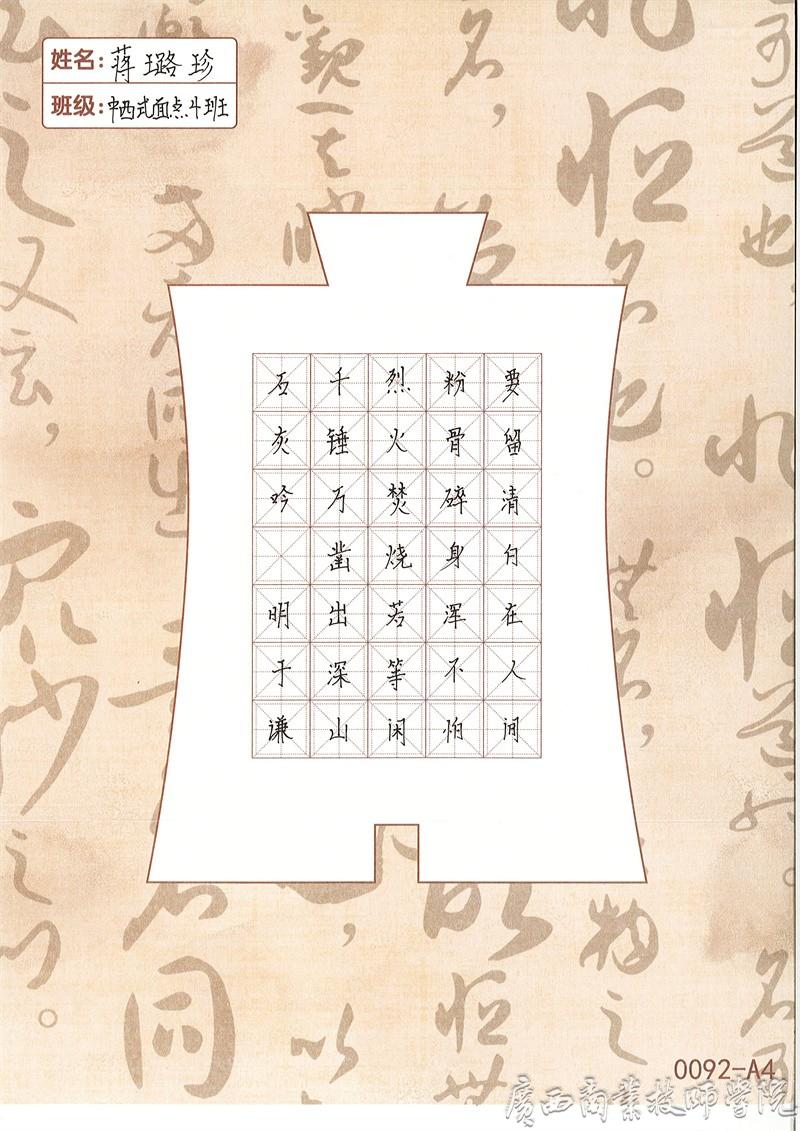 姓名:蒋璐珍
班级:中西式面点4班
石灰吟 明于谦
千锤万凿出深山
烈火焚烧若等闲
粉骨碎身浑不怕
要留清白在人间
0092-A4
廣西商業技師學院